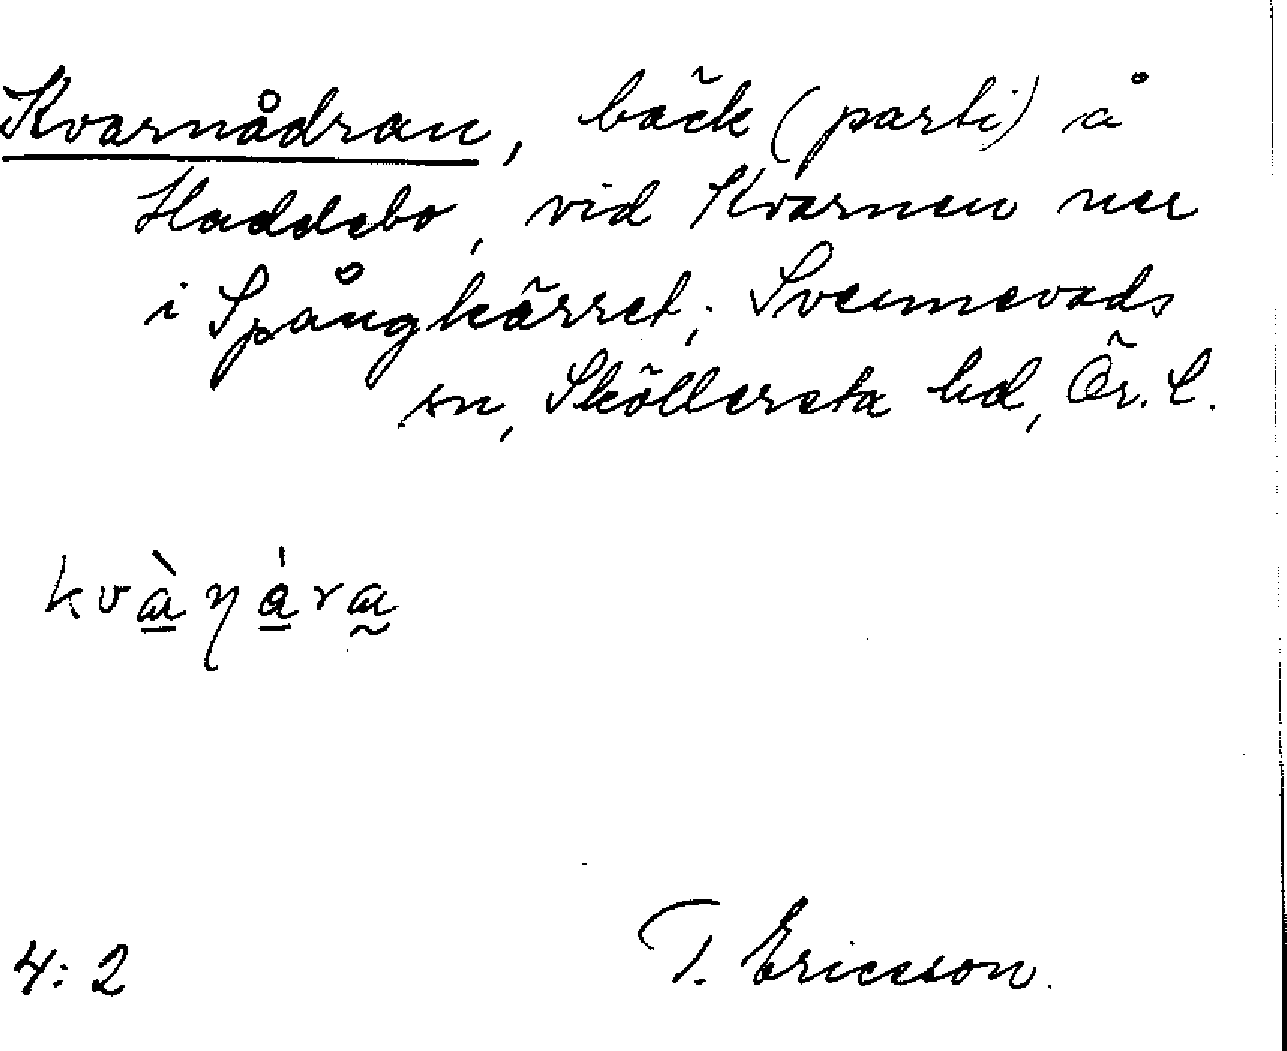 Kvarnådran, bäck (parti) å
Haddebo, vid Kvarnen ner
i Spångkärret; Svennevads
sn, Sköllersta hd, Ör. l.
4:2
T. Ericsson.